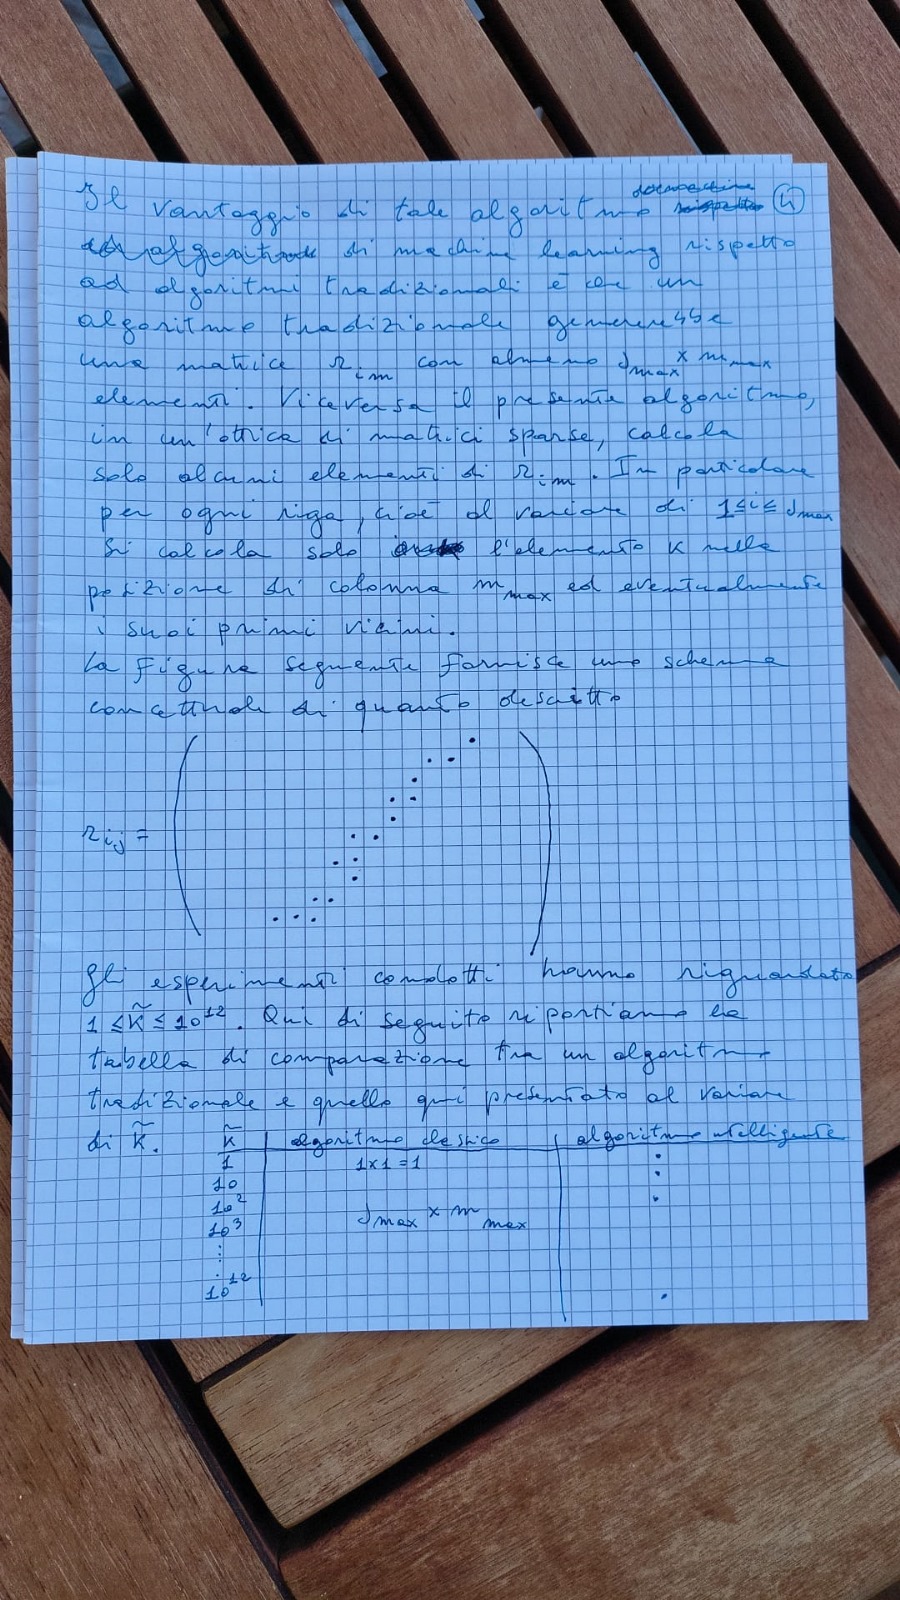 Il vantaggio di tale algoritmo (4)
di machine learning rispetto
ad algoritmi tradizionali è che un
algoritmo tradizionale generesse
una matrice r_im con almeno J_max × m_max
elementi. Viceversa il presente algoritmo,
in un'ottica di matrici sparse, calcola
solo alcuni elementi di r_im. In particolare
per ogni riga, cioè al variare di 1≤i≤J_max
si calcola solo l'elemento K nella
posizione di colonna m_max ed eventualmente
i suoi primi vicini.
La figura seguente fornisce uno schema
concettuale di quanto descritto
r_ij =
Gli esperimenti condotti hanno riguardato
1 ≤ K̃ ≤ 10^12. Qui di seguito riportiamo la
tabella di comparazione tra un algoritmo
tradizionale e quello qui presentato al variare
di K̃. K̃ algoritmo classico algoritmo intelligente
1 1×1=1
10
10^2
10^3 J_max × m_max
⋮
10^12